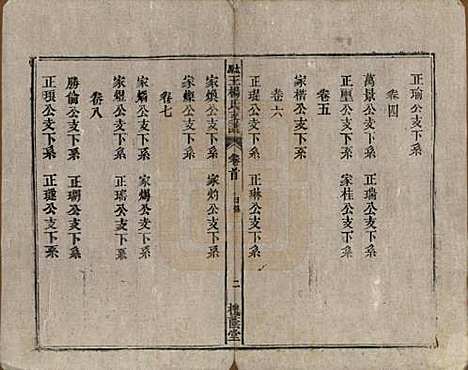 正瑜公支下系
卷四
萬景公支下系 正瑞公支下系
正壐公支下系 家桂公支下系
卷五
家楷公支下系
卷六
正瑅公支下系 正琳公支下系
家煥公支下系 家灼公支下系
王楊氏支譜 卷首 目錄 二 槐蔭堂
家爍公支下系
卷七
家燨公支下系 家煬公支下系
家焜公支下系 正瑞公支下系
卷八
勝倫公支下系 正瑚公支下系
正璜公支下系 正璉公支下系